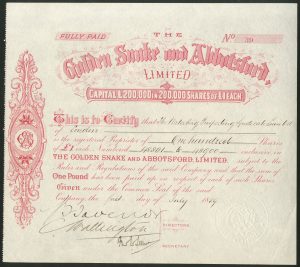 FULLY PAID
THE
No 39
Golden Snake and Abbotsford,
LIMITED
CAPITAL £200,000 IN 200,000 SHARES OF £1 EACH
This is to Certify that The Waterloo Syndicate Limited
London
is the registered Proprietor of One hundred Shares
of £1 each Numbered to inclusive in
THE GOLDEN SNAKE AND ABBOTSFORD, LIMITED, subject to the
Rules and Regulations of the said Company and that the sum of
One Pound has been paid up in respect of each of such Shares
Given under the Common Seal of the said
Company the first day of July 18
DIRECTORS
SECRETARY